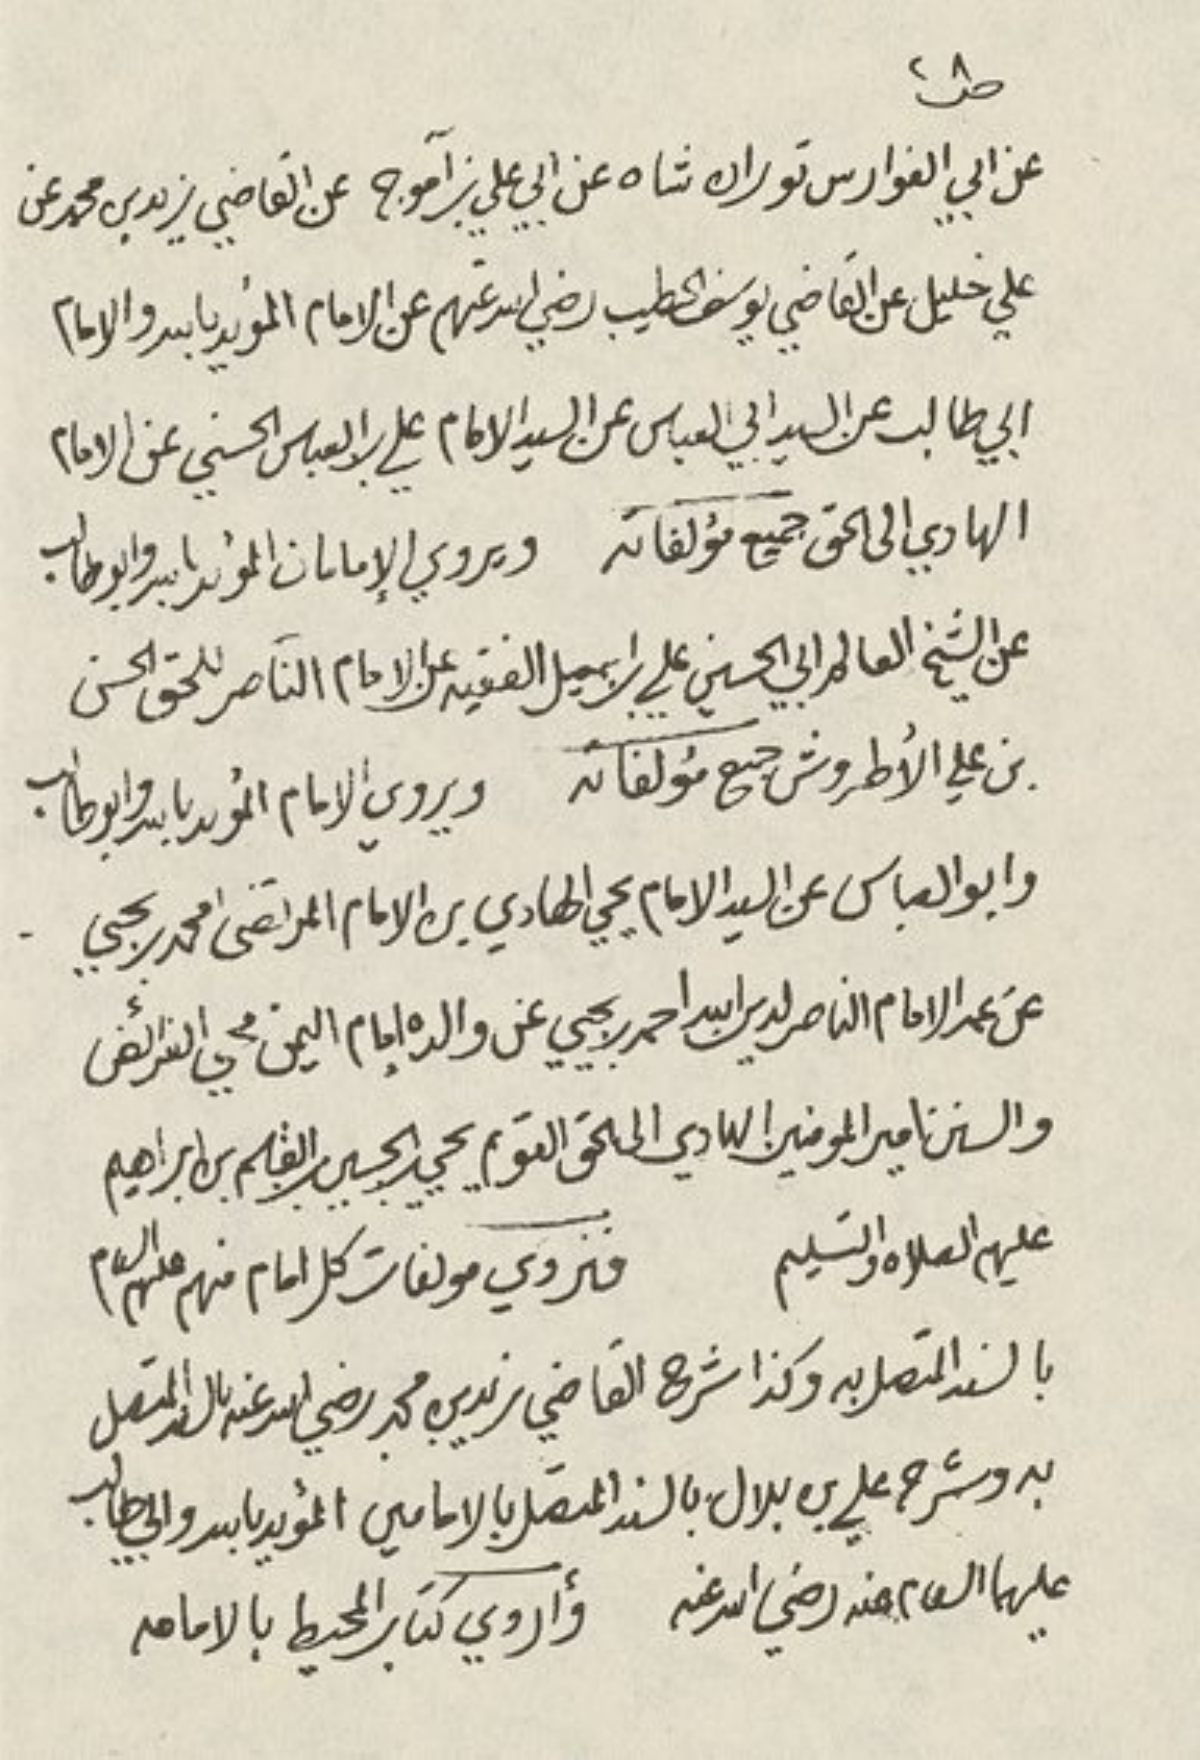 ص ٢٨
عن ابي الفوارس توران شاه عن ابي علي بن آموج عن القاضي زيد بن محمد عن
علي خليل عن القاضي يوسف الخطيب رضي الله عنهم عن الامام المؤيد بالله والامام
ابي طالب عن السيد ابي العباس عن السيد الامام علي بن العباس الحسني عن الامام
الهادي الى الحق جميع مؤلفاته ويروي الإمامان المؤيد بالله وابو طالب
عن الشيخ العالم ابي الحسين علي بن اسمعيل الفقيه عن الامام الناصر للحق الحسن
بن علي الأطروش جميع مؤلفاته ويروي الامام المؤيد بالله وابو طالب
وابو العباس عن السيد الامام يحيى الهادي بن الامام المرتضى محمد بن يحيى
عن عمه الامام الناصر لدين الله احمد بن يحيى عن والده إمام اليمن محيي الفرائض
والسنن امير المومنين الهادي الى الحق القويم يحيى بن الحسين بن القاسم بن ابراهيم
عليهم الصلاه والتسليم فنروي مولفات كل امام منهم عليهم السلام
بالسند المتصل به وكذا شرح القاضي زيد بن محمد رضي الله عنه بالسند المتصل
به وشرح علي بن بلال بالسند المتصل بالامامين المؤيد بالله وابي طالب
عليهما السلام عنه رضي الله عنه وأروي كتاب المحيط بالامامه